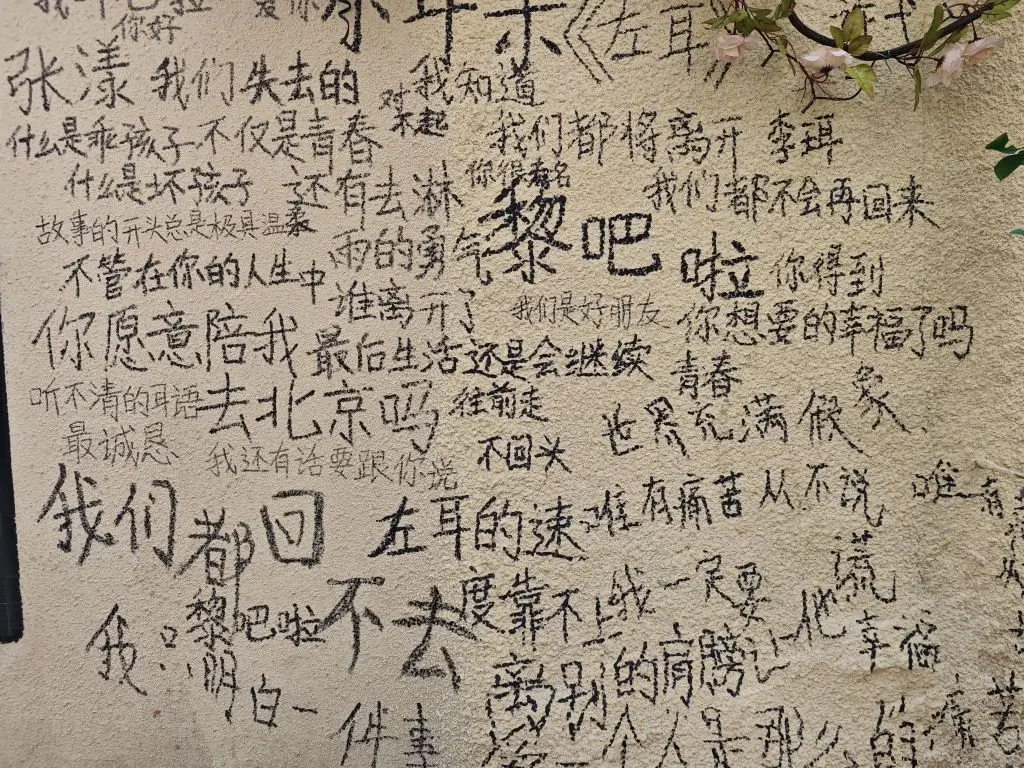 你好
《左耳》
张漾 我们失去的
对不起
我知道
什么是乖孩子 不仅是青春
我们都将离开 李珥
什么是坏孩子 还有去淋
雨的勇气
你得有名
我们都不会再回来
故事的开头总是极具温柔
黎吧啦
不管在你的人生中
谁离开了
你得到
你想要的幸福了吗
我们是好朋友
你愿意陪我
去北京吗
最后生活还是会继续
往前走
不回头
青春
世界充满假象
听不清的耳语
最诚恳
我还有话要跟你说
我们都回不去
左耳的速
度靠不上
唯有痛苦从不说
谎
唯有
黎吧啦
我只明白一
件事
我一定要
让他
幸福
离别的肩膀
个人是那么的
痛苦